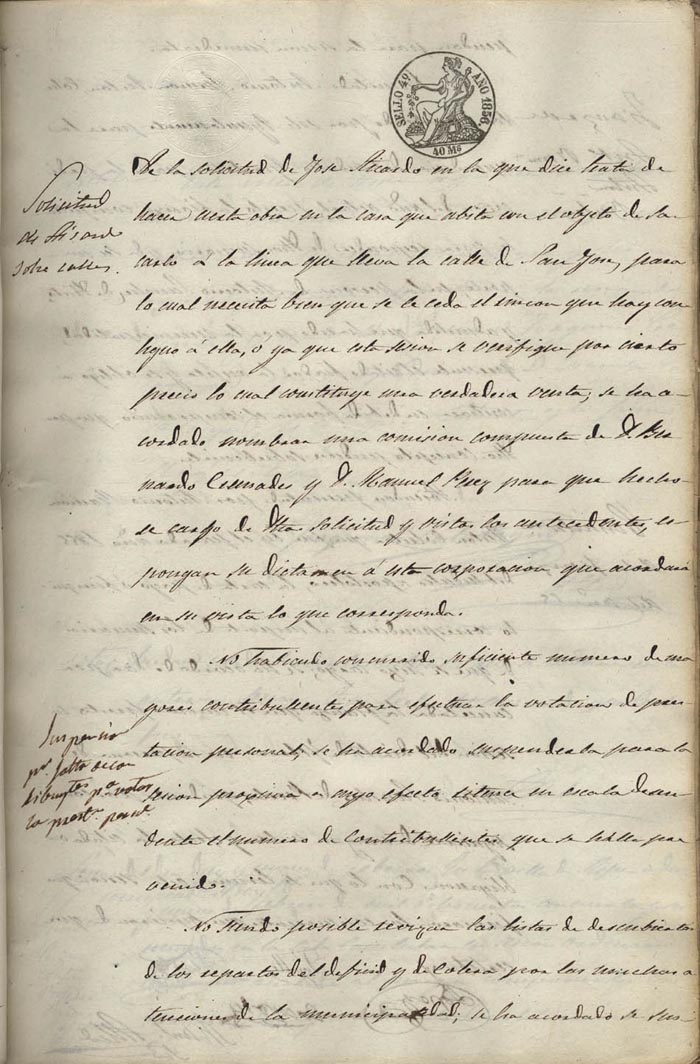 SELLO 4º AÑO 1856.
40 Ms
De la solicitud de Jose Sicardo en la que dice trata de
hacer cierta obra en la casa que abita con el objeto de sa-
carlo á la linea que lleva la calle de San Jose, para
lo cual necesita bien que se le ceda el rincon que hay con
tiguo á ella, o ya que esta sesion se verifique por cierto
precio lo cual constituye una verdadera venta; se ha a-
cordado nombrar una comision compuesta de D. Ber
nardo Comades y D. Manuel Puig para que hecho
se cargo de dha solicitud y vistos los antecedentes, es-
pongan su dictamen á esta corporacion que acordará
en su vista lo que corresponda.
No habiendo concurrido suficiente numero de ma
yores contribullentes para efectuar la votacion de pres-
tacion personal, se ha acordado suspenderla para la
sesion proxima a cuyo efecto
el numero de contribullentes que se halla pre
venido.
No siendo posible revisar las listas de descubiertos
de los repartos del deficid y de colera por las muchas a
tenciones de la municipalidad; se ha acordado se sus-
Solicitud
de Sicardo
sobre calles.
Suspencion
pr. falta de con
tribuytes pa. votar
la prestn. persl.